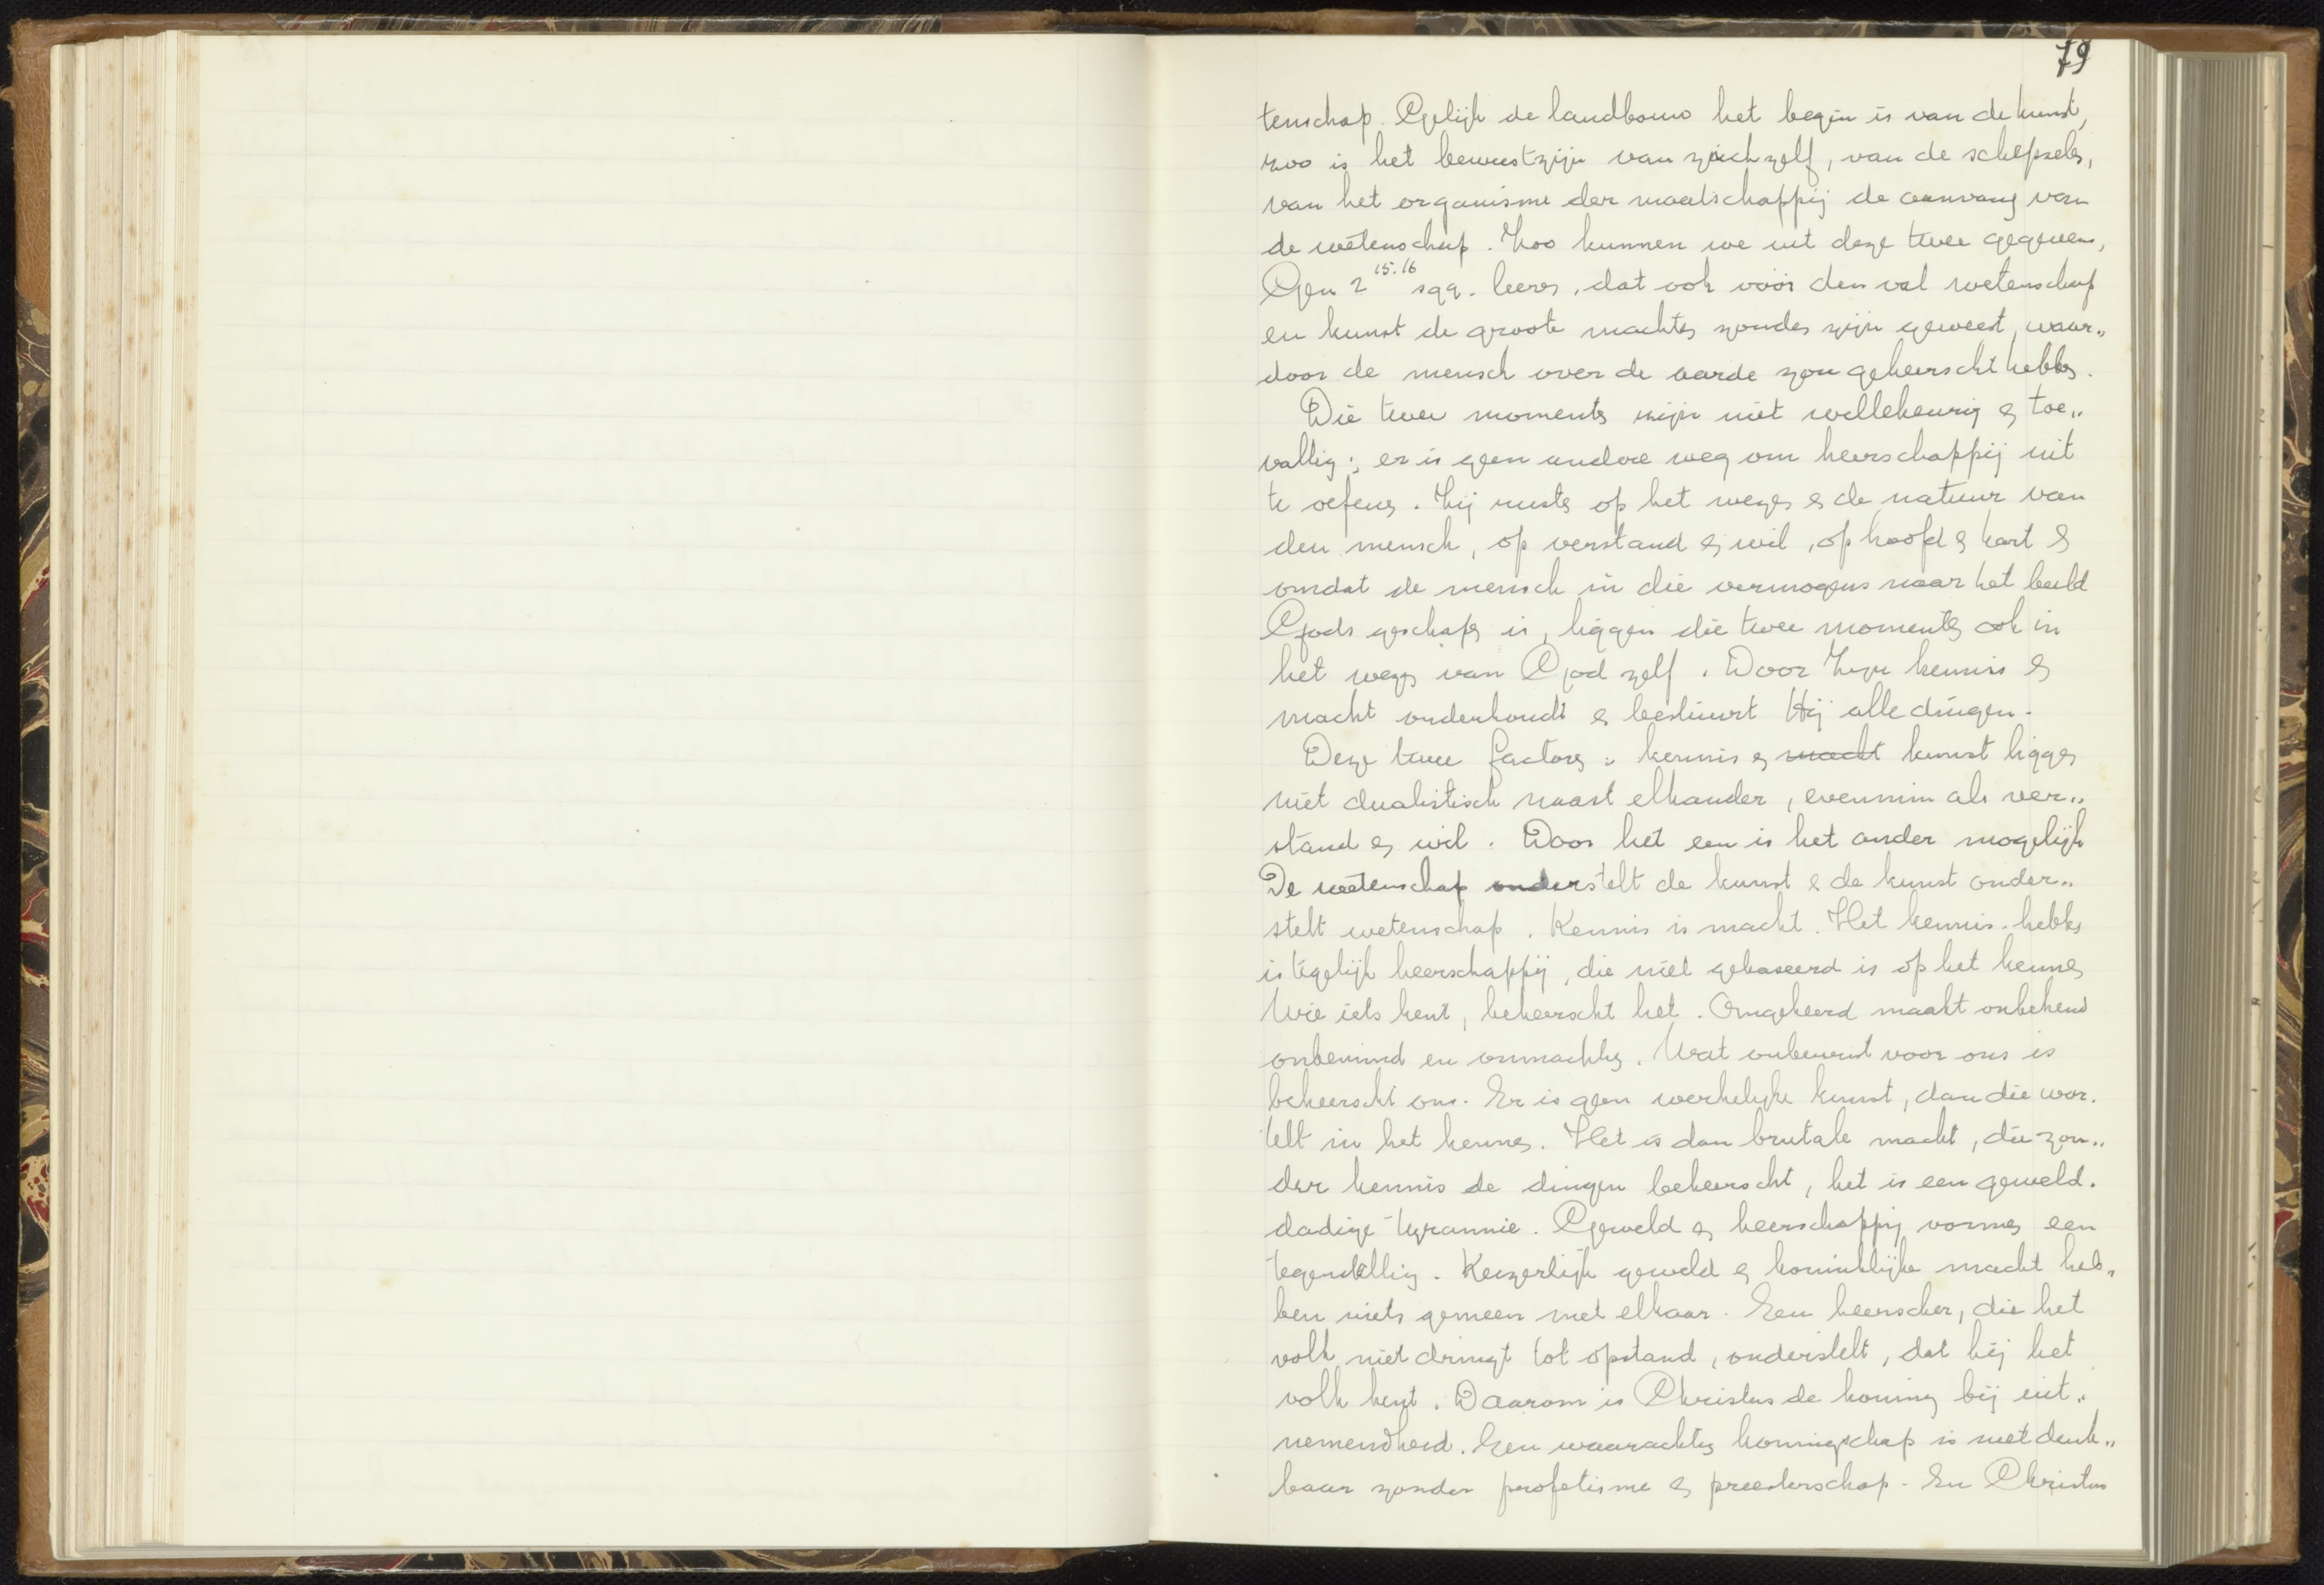 79
tenschap. Gelijk de landbouw het begin is van de kunst,
zoo is het bewustzijn van zich zelf, van de schepselen,
van het organisme der maatschappij de aanvang van
de wetenschap. Zoo kunnen we uit deze twee gegevens,
Gen 2 15.16 sqq. leeren, dat ook vóór den val wetenschap
en kunst de groote machten zouden zijn geweest, waar„
door de mensch over de aarde zou geheerscht hebben.
Die twee momenten zijn niet willekeurig en toe„
vallig; er is geen andere weg om heerschappij uit
te oefenen. Zij rusten op het wezen en de natuur van
den mensch, op verstand en wil, op hoofd en hart en
omdat de mensch in die vermogens naar het beeld
Gods geschapen is, liggen die twee momenten ook in
het wezen van God zelf. Door Zijn kennis en
macht onderhoudt en bestuurt Hij alle dingen.
Deze twee factoren: kennis en macht kunst liggen
niet dualistisch naast elkander, evenmin als ver„
stand en wil. Door het een is het ander mogelijk
De wetenschap onderstelt de kunst en de kunst onder„
stelt wetenschap. Kennis is macht. Het kennis-hebben
is tegelijk heerschappij, die niet gebaseerd is op het kennen
Wie iets kent, beheerscht het. Omgekeerd maakt onbekend
onbemind en onmachtig. Wat onbewust voor ons is
beheerscht ons. Er is geen werkelijke kunst, dan die wor-
telt in het kennen. Het is dan brutale macht, die zon„
der kennis de dingen beheerscht, het is een geweld-
dadige tyrannie. Geweld en heerschappij vormen een
tegenstelling. Keizerlijk geweld en koninklijke macht heb„
ben niets gemeen met elkaar. Een heerscher, die het
volk niet dringt tot opstand, onderstelt, dat hij het
volk kent. Daarom is Christus de koning bij uit„
nemendheid. Een waarachtig koningschap is niet denk„
baar zonder profetisme en preesterschap. En Christus